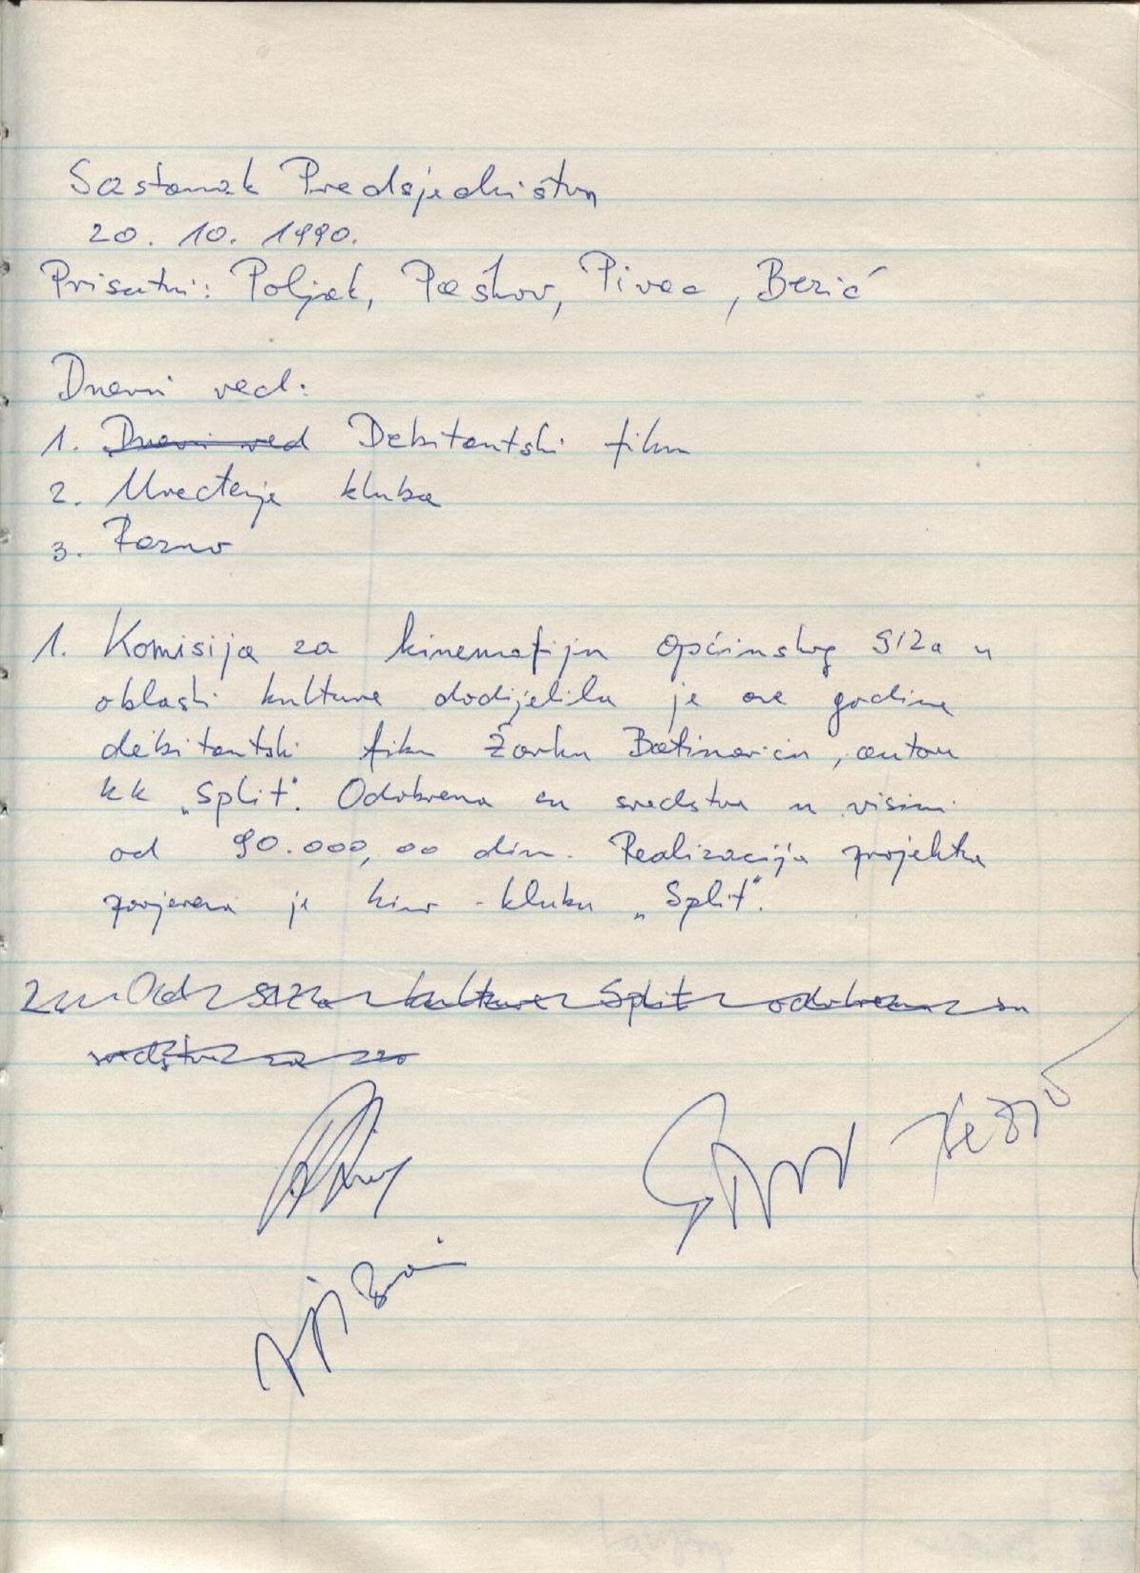 Sastanak Predsjedništva
20. 10. 1990.
Prisutni: Poljak, Paškov, Pivac, Bezić
Dnevni red:
1. Dnevni red Debitantski film
2. Uređenje kluba
3. Razno
1. Komisija za kinematiju općinskog SIZa u
oblasti kulture dodijelila je ove godine
debitantski film Žarku Batinoviću, autoru
KK „Split". Odobrena su sredstva u visini
od 90.000,00 din. Realizacija projekta
povjerena je kino-klubu „Split".
2. Od SIZa kulture Split odobrena su
sredstva za